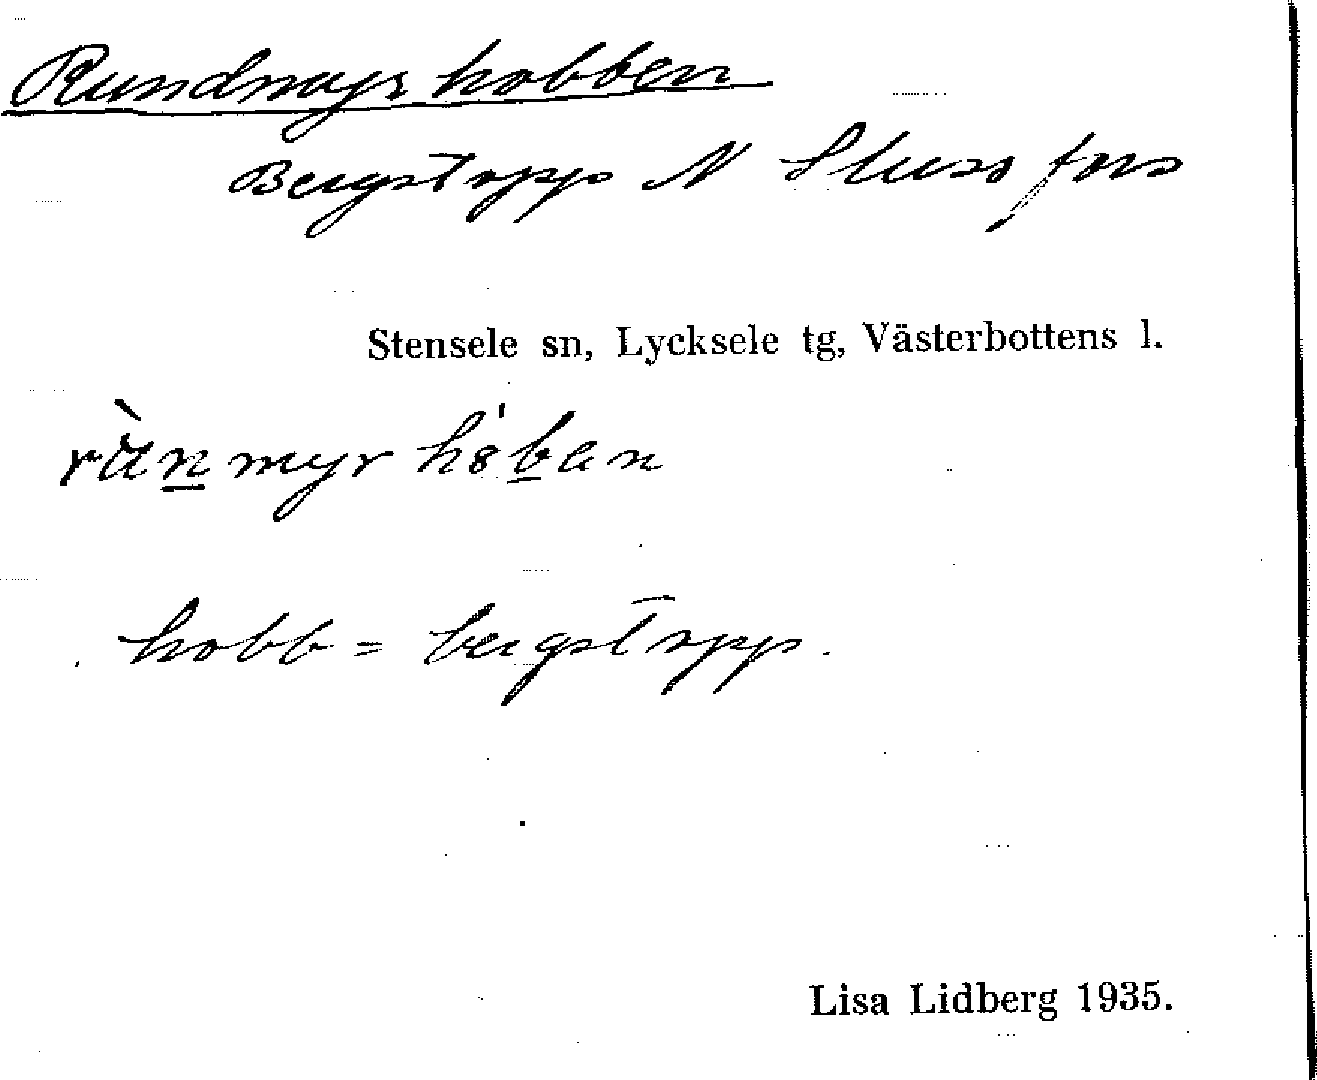 Rundmyrhobben
Bergstopp N Slussfors
Stensele sn, Lycksele tg, Västerbottens l.
rùn̲myrhǿb̲an
hobb = bergstopp.
Lisa Lidberg 1935.